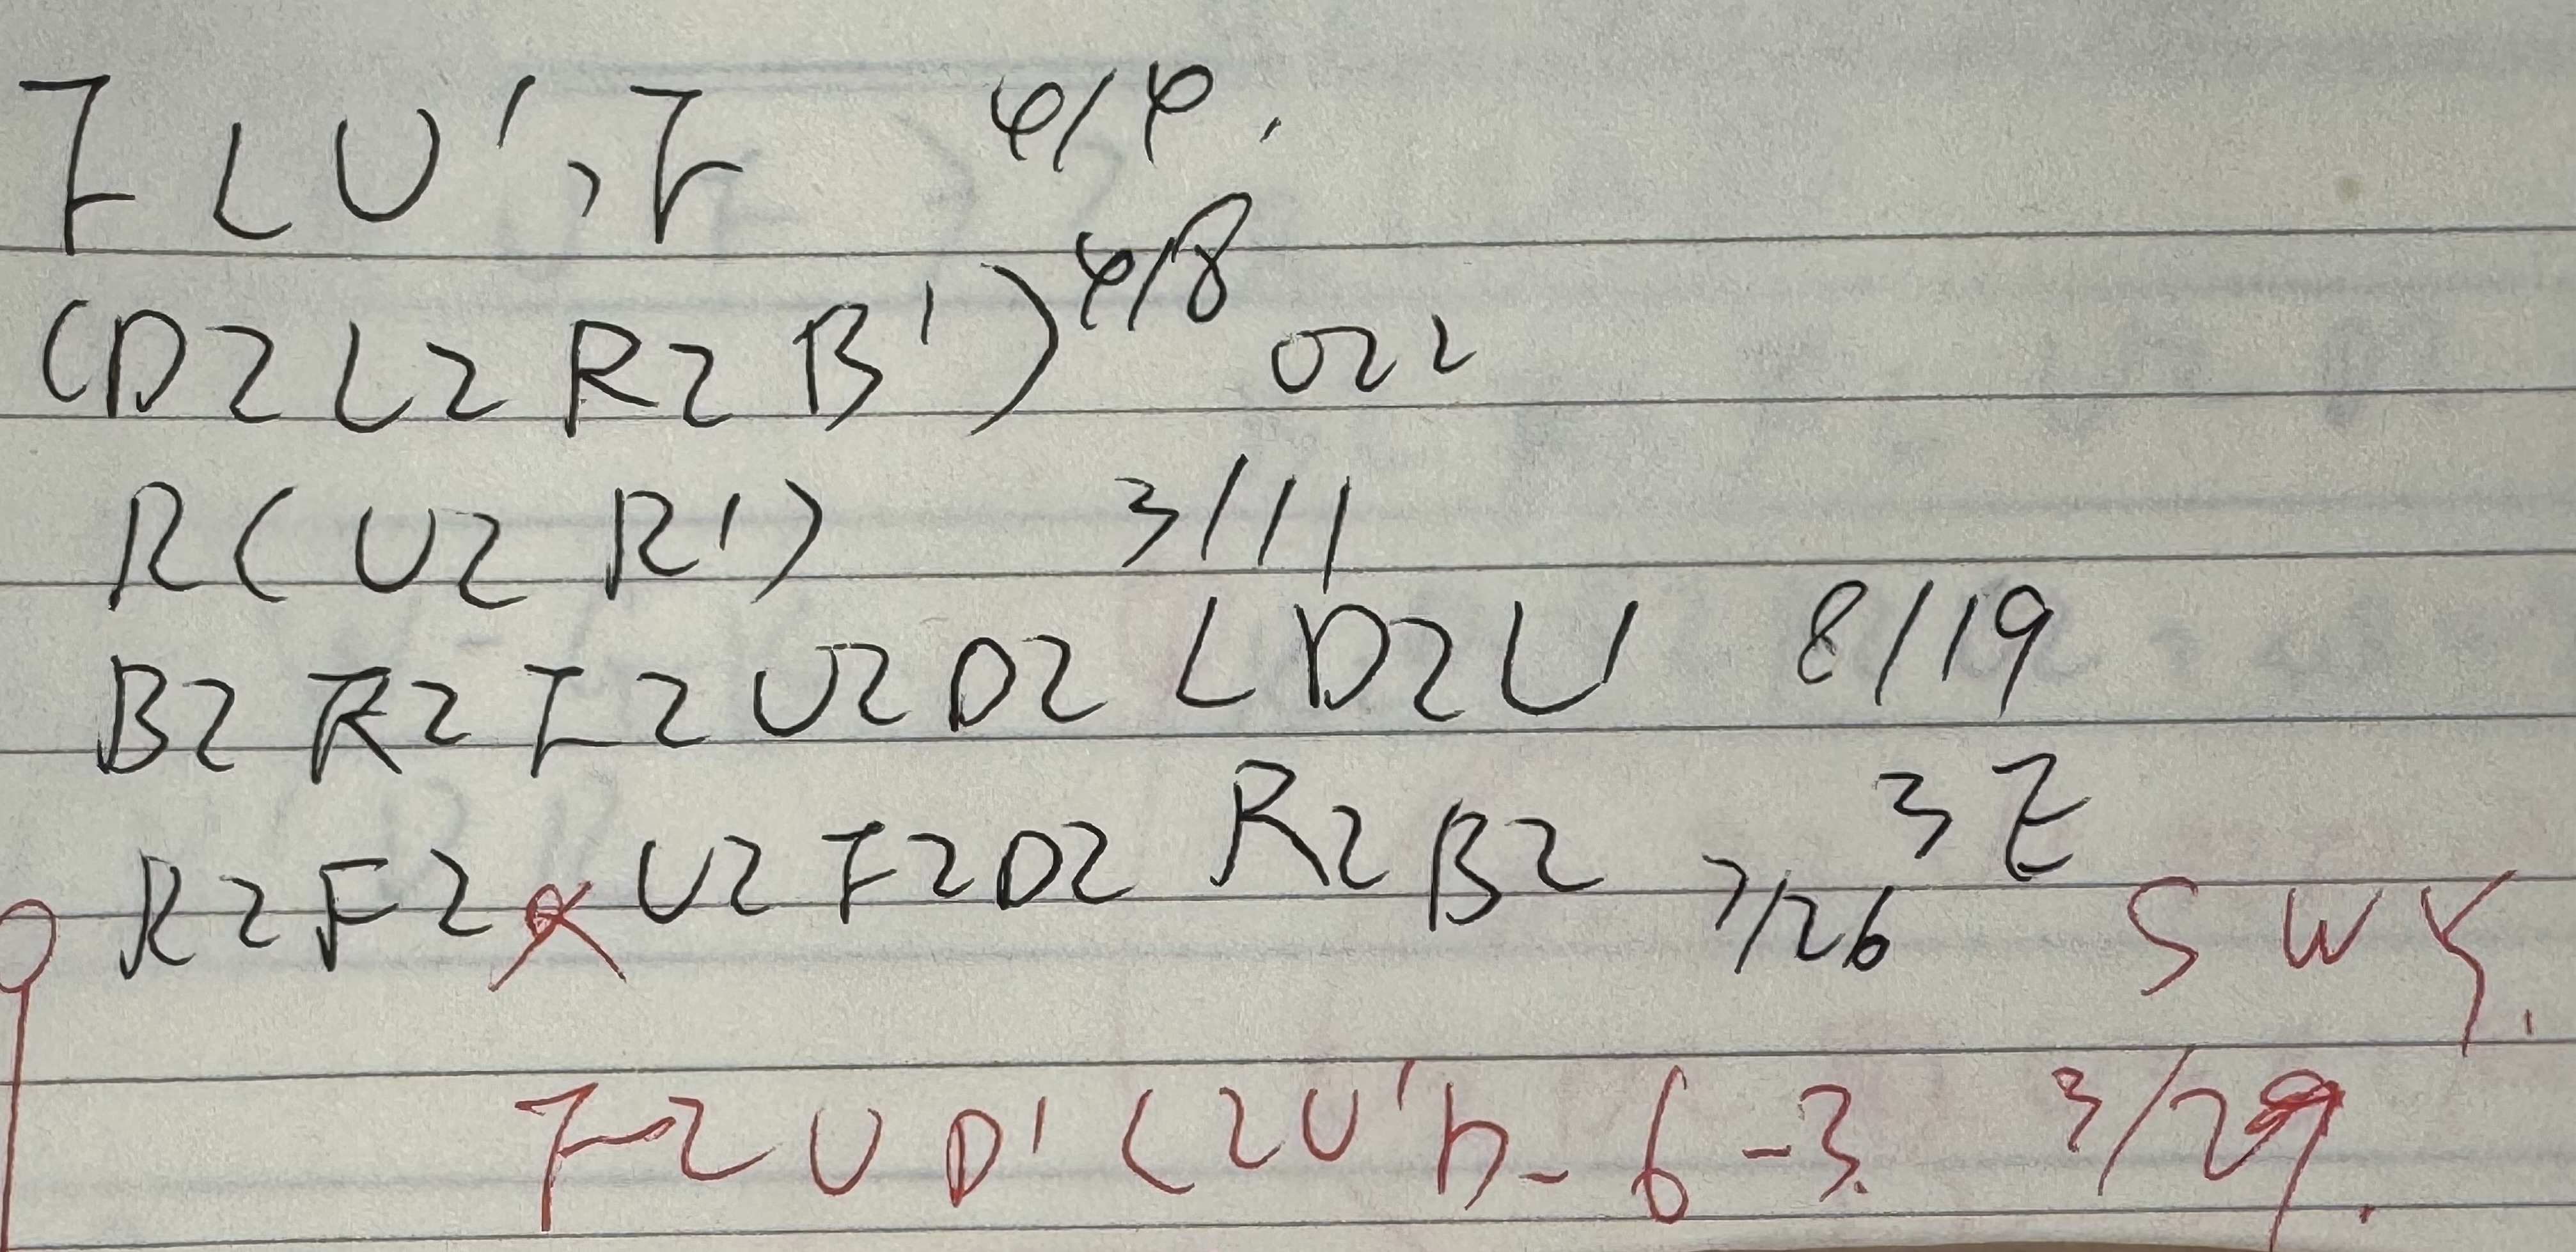 F L U' , F 4/4.
(D2 L2 R2 B') 4/8 022
R ( U2 R' ) 3/11
B2 R2 F2 U2 D2 L D2 U 8/19
R2 F2 U2 F2 D2 R2 B2 7/26 3E
S W Y.
F2 U D' L2 U' D - 6 - 3. 3/29.